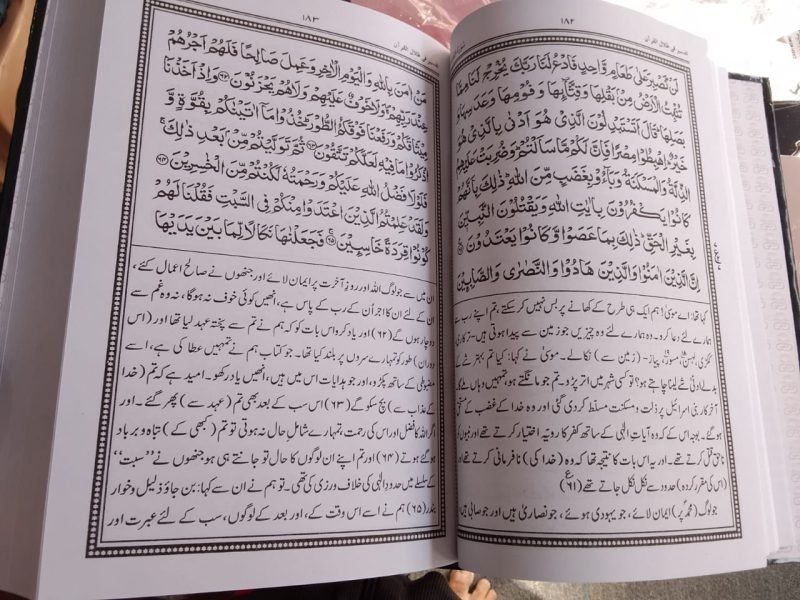 ١٨٢
تفسیر فی ظلال القرآن
لَنْ نَّصْبِرَ عَلٰى طَعَامٍ وَّاحِدٍ فَادْعُ لَنَا رَبَّكَ يُخْرِجْ لَنَا مِمَّا
تُنْۢبِتُ الْاَرْضُ مِنْۢ بَقْلِهَا وَقِثَّآئِهَا وَفُوْمِهَا وَعَدَسِهَا وَ
بَصَلِهَا قَالَ اَتَسْتَبْدِلُوْنَ الَّذِيْ هُوَ اَدْنٰى بِالَّذِيْ هُوَ
خَيْرٌ اِهْبِطُوْا مِصْرًا فَاِنَّ لَكُمْ مَّا سَاَلْتُمْ وَضُرِبَتْ عَلَيْهِمُ
الذِّلَّةُ وَالْمَسْكَنَةُ وَبَآءُوْ بِغَضَبٍ مِّنَ اللّٰهِ ذٰلِكَ بِاَنَّهُمْ
كَانُوْا يَكْفُرُوْنَ بِاٰيٰتِ اللّٰهِ وَيَقْتُلُوْنَ النَّبِيّٖنَ
بِغَيْرِ الْحَقِّ ذٰلِكَ بِمَا عَصَوْا وَّكَانُوْا يَعْتَدُوْنَ ۝٦١
اِنَّ الَّذِيْنَ اٰمَنُوْا وَالَّذِيْنَ هَادُوْا وَالنَّصٰرٰى وَالصّٰبِـِٕيْنَ
کہا تھا: اے موسیٰ! ہم ایک ہی طرح کے کھانے پر بس نہیں کر سکتے، تم اپنے رب سے
ہمارے لئے دعا کرو۔ وہ ہمارے لئے وہ چیزیں جو زمین سے پیدا ہوتی ہیں- ترکاری،
ککڑی، لہسن، مسور، پیاز- (زمین سے) نکالے۔ موسیٰ نے کہا: کیا تم بہتر شے کے
بدلے ادنیٰ شے لینا چاہتے ہو؟ تو کسی شہر میں اتر پڑو۔ تم جو مانگتے ہو، تمہیں وہاں ملے گا۔
آخر کار بنی اسرائیل پر ذلت و مسکنت مسلط کر دی گئی اور وہ خدا کے غضب کے مستحق
ہو گئے۔ بوجہ اس کے کہ وہ آیات الٰہی کے ساتھ کفر کا رویہ اختیار کرتے تھے اور نبیوں کو
ناحق قتل کرتے تھے۔ اور یہ اس بات کا نتیجہ تھا کہ وہ (خدا کی) نافرمانی کرتے تھے اور
(اس کی مقرر کردہ) حدود سے نکل نکل جاتے تھے (٦١)
جو لوگ (محمدؐ پر) ایمان لائے، جو یہودی ہوئے، جو نصاریٰ ہیں اور جو صابی ہیں
١٨٣
تفسیر فی ظلال القرآن
مَنْ اٰمَنَ بِاللّٰهِ وَالْيَوْمِ الْاٰخِرِ وَعَمِلَ صَالِحًا فَلَهُمْ اَجْرُهُمْ
عِنْدَ رَبِّهِمْ وَلَا خَوْفٌ عَلَيْهِمْ وَلَا هُمْ يَحْزَنُوْنَ ۝٦٢ وَاِذْ اَخَذْنَا
مِيْثَاقَكُمْ وَرَفَعْنَا فَوْقَكُمُ الطُّوْرَ خُذُوْا مَآ اٰتَيْنٰكُمْ بِقُوَّةٍ وَّ
اذْكُرُوْا مَا فِيْهِ لَعَلَّكُمْ تَتَّقُوْنَ ۝٦٣ ثُمَّ تَوَلَّيْتُمْ مِّنْۢ بَعْدِ ذٰلِكَ
فَلَوْلَا فَضْلُ اللّٰهِ عَلَيْكُمْ وَرَحْمَتُهٗ لَكُنْتُمْ مِّنَ الْخٰسِرِيْنَ ۝٦٤
وَلَقَدْ عَلِمْتُمُ الَّذِيْنَ اعْتَدَوْا مِنْكُمْ فِى السَّبْتِ فَقُلْنَا لَهُمْ
كُوْنُوْا قِرَدَةً خَاسِـِٕيْنَ ۝٦٥ فَجَعَلْنٰهَا نَكَالًا لِّمَا بَيْنَ يَدَيْهَا
ان میں سے جو لوگ اللہ اور روز آخرت پر ایمان لائے اور جنھوں نے صالح اعمال کئے،
ان کے لئے ان کا اجر ان کے رب کے پاس ہے، انھیں کوئی خوف نہ ہوگا، نہ وہ غم سے
دو چار ہوں گے (٦٢) اور یاد کرو اس بات کو کہ ہم نے تم سے پختہ عہد لیا تھا اور (اس
دوران) طور کو تمہارے سروں پر بلند کیا تھا۔ جو کتاب ہم نے تمہیں عطا کی ہے، اسے
مضبوطی کے ساتھ پکڑو، اور جو ہدایات اس میں ہیں، انھیں یاد رکھو۔ امید ہے کہ تم (خدا
کے عذاب سے) بچ سکو گے (٦٣) اس سب کے بعد بھی تم (عہد سے) پھر گئے۔ اور
اگر اللہ کا فضل اور اس کی رحمت تمہارے شامل حال نہ ہوتی تو تم (کبھی کے) تباہ و برباد
ہو گئے ہوتے (٦٤) اور تم اپنے ان لوگوں کا حال تو جانتے ہی ہو جنھوں نے ’’سبت‘‘
کے سلسلے میں حدود الٰہی کی خلاف ورزی کی تھی۔ تو ہم نے ان سے کہا: بن جاؤ ذلیل و خوار
بندر (٦٥) ہم نے اسے اس وقت کے، اور بعد کے لوگوں، سب کے لئے عبرت اور